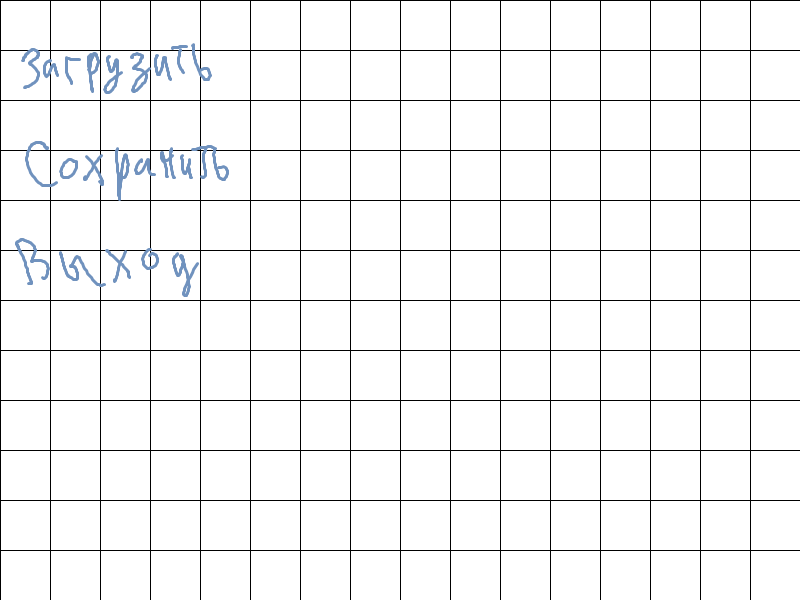 Загрузить
Сохранить
Выход